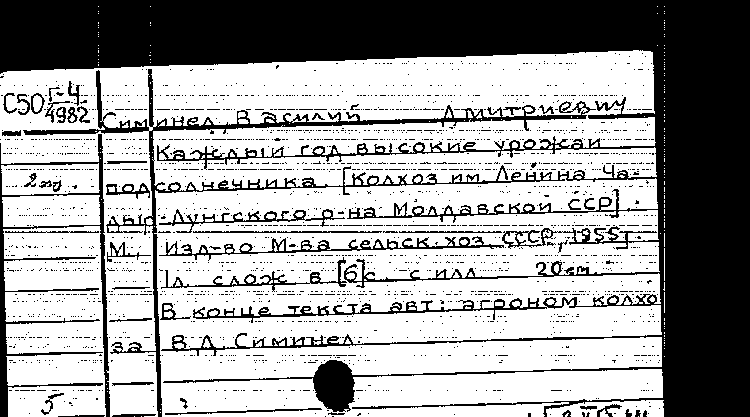 С50 Г-4
4982
Симинел, Василий Дмитриевич
Каждый год высокие урожаи
2 экз. подсолнечника. [Колхоз им. Ленина Ча-
дыр-Лунгского р-на Молдавской ССР].
М., Изд-во М-ва сельск. хоз. СССР, 1955].
1 л. слож. в [6] с. с илл. 20 см.
В конце текста авт.: агроном колхо
за В. Д. Симинел.
5